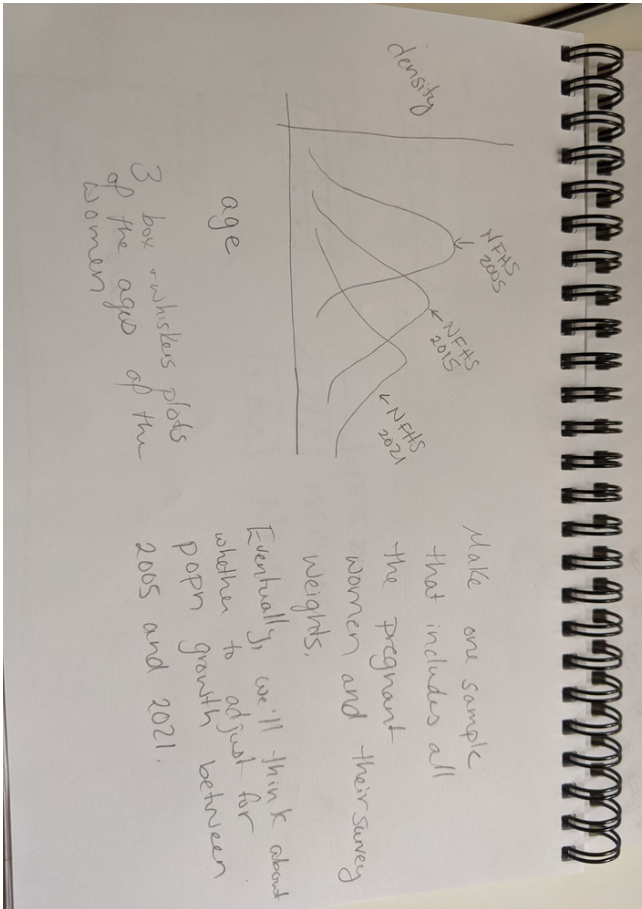 density
NFHS
2005
NFHS
2015
NFHS
2021
age
3 box + whiskers plots
of the ages of the
women
Make one sample
that includes all
the pregnant
women and their survey
weights.
Eventually, we'll think about
whether to adjust for
popn growth between
2005 and 2021.